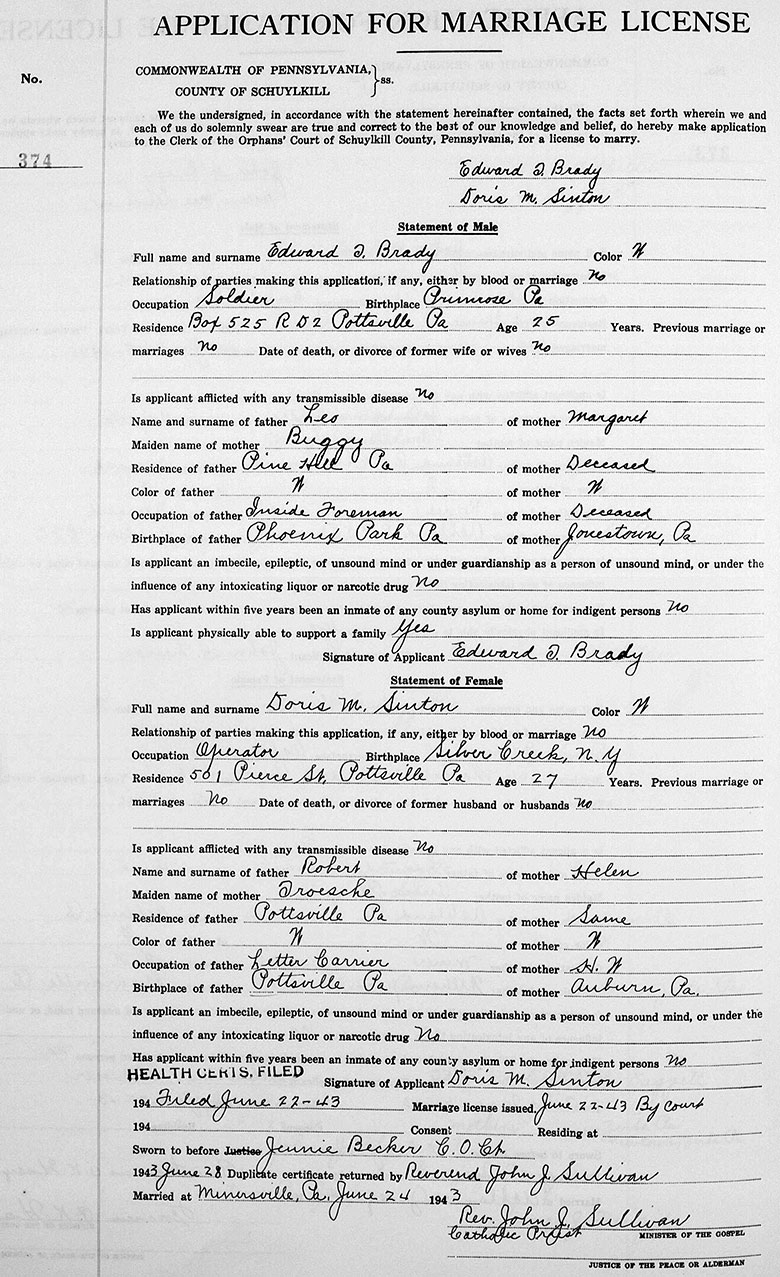 APPLICATION FOR MARRIAGE LICENSE
No.
COMMONWEALTH OF PENNSYLVANIA,
COUNTY OF SCHUYLKILL
} ss.
We the undersigned, in accordance with the statement hereinafter contained, the facts set forth wherein we and
each of us do solemnly swear are true and correct to the best of our knowledge and belief, do hereby make application
to the Clerk of the Orphans' Court of Schuylkill County, Pennsylvania, for a license to marry.
374
Edward J. Brady
Doris M. Sinton
Statement of Male
Full name and surname Edward J. Brady Color W
Relationship of parties making this application, if any, either by blood or marriage No
Occupation Soldier Birthplace Primrose Pa
Residence Box 525 R D 2 Pottsville Pa Age 25 Years. Previous marriage or
marriages No Date of death, or divorce of former wife or wives No
Is applicant afflicted with any transmissible disease No
Name and surname of father Leo of mother Margaret
Maiden name of mother Buggy
Residence of father Pine Hill Pa of mother Deceased
Color of father W of mother W
Occupation of father Inside Foreman of mother Deceased
Birthplace of father Phoenix Park Pa of mother Jonestown, Pa
Is applicant an imbecile, epileptic, of unsound mind or under guardianship as a person of unsound mind, or under the
influence of any intoxicating liquor or narcotic drug No
Has applicant within five years been an inmate of any county asylum or home for indigent persons No
Is applicant physically able to support a family Yes
Signature of Applicant Edward J. Brady
Statement of Female
Full name and surname Doris M. Sinton Color W
Relationship of parties making this application, if any, either by blood or marriage No
Occupation Operator Birthplace Silver Creek, N. Y
Residence 501 Pierce St, Pottsville Pa Age 27 Years. Previous marriage or
marriages No Date of death, or divorce of former husband or husbands No
Is applicant afflicted with any transmissible disease No
Name and surname of father Robert of mother Helen
Maiden name of mother Troesche
Residence of father Pottsville Pa of mother Same
Color of father W of mother W
Occupation of father Letter Carrier of mother H. W
Birthplace of father Pottsville Pa of mother Auburn, Pa.
Is applicant an imbecile, epileptic, of unsound mind or under guardianship as a person of unsound mind, or under the
influence of any intoxicating liquor or narcotic drug No
Has applicant within five years been an inmate of any county asylum or home for indigent persons No
HEALTH CERTS. FILED
Signature of Applicant Doris M. Sinton
194 Filed June 22-43 Marriage license issued, June 22-43 By Court
194 Consent Residing at
Sworn to before Justice Jennie Becker C. O. Ct.
1943 June 28 Duplicate certificate returned by Reverend John J. Sullivan
Married at Minersville, Pa, June 24 1943
Rev. John J. Sullivan
Catholic Priest MINISTER OF THE GOSPEL
JUSTICE OF THE PEACE OR ALDERMAN